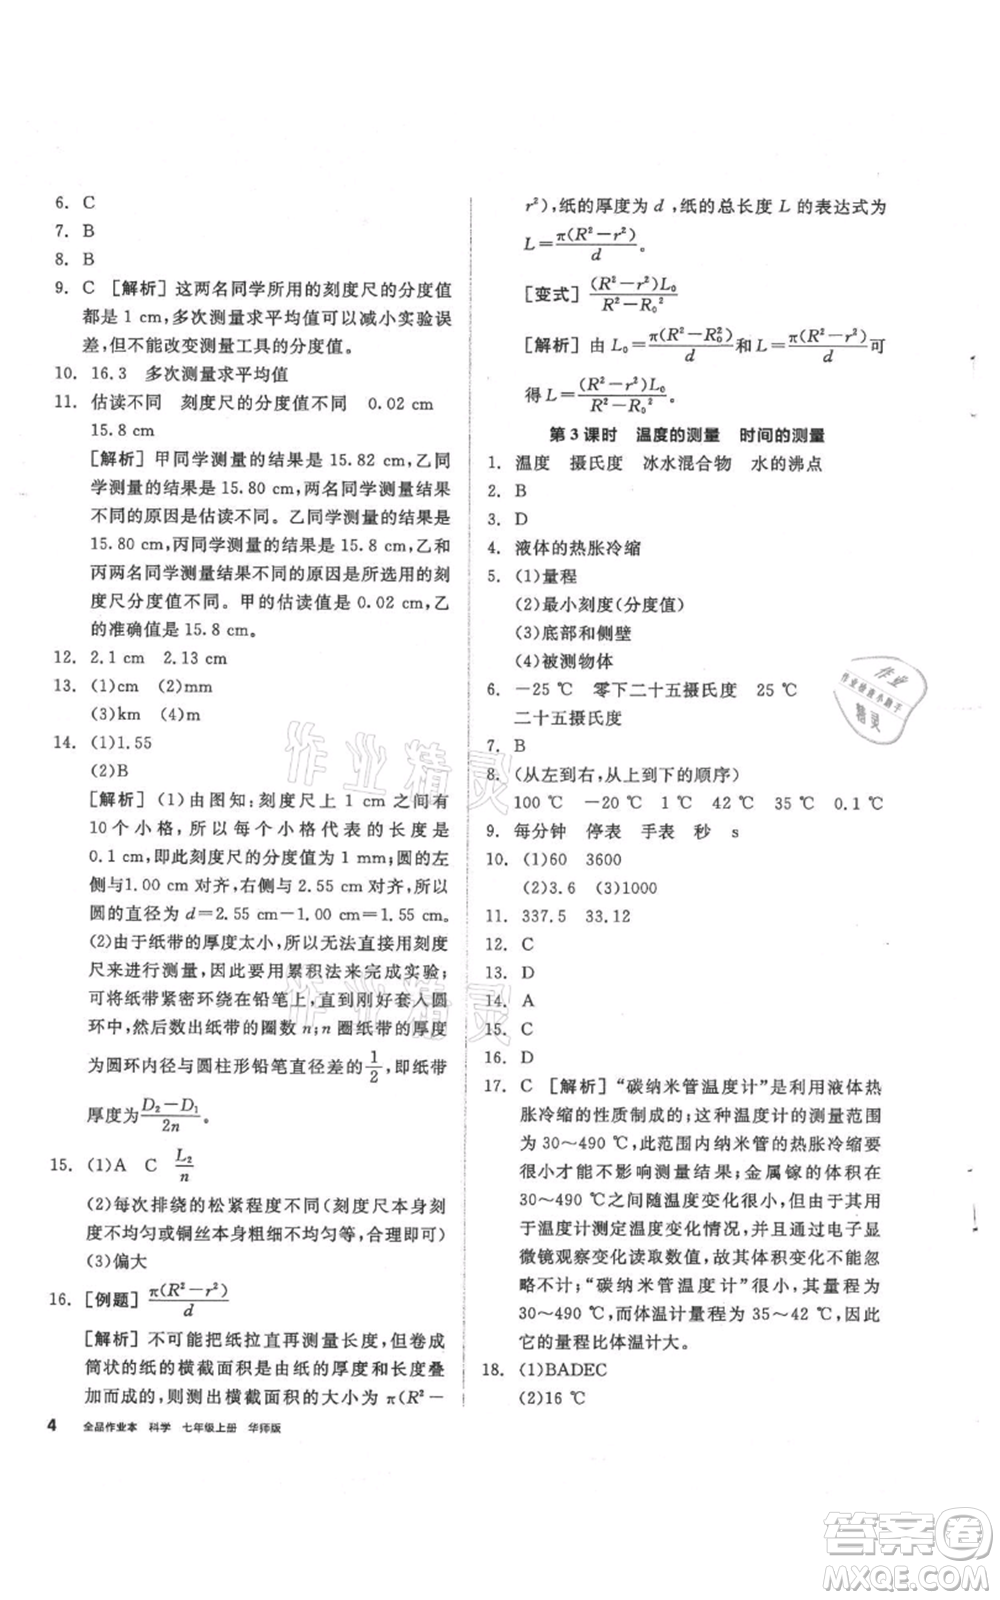 6. C
7. B
8. B
9. C [解析] 这两名同学所用的刻度尺的分度值
都是 1 cm,多次测量求平均值可以减小实验误
差,但不能改变测量工具的分度值。
10. 16.3 多次测量求平均值
11. 估读不同 刻度尺的分度值不同 0.02 cm
15.8 cm
[解析] 甲同学测量的结果是 15.82 cm,乙同
学测量的结果是 15.80 cm,两名同学测量结果
不同的原因是估读不同。乙同学测量的结果是
15.80 cm,丙同学测量的结果是 15.8 cm,乙和
丙两名同学测量结果不同的原因是所选用的刻
度尺分度值不同。甲的估读值是 0.02 cm,乙
的准确值是 15.8 cm。
12. 2.1 cm 2.13 cm
13. (1)cm (2)mm
(3)km (4)m
14. (1)1.55
(2)B
[解析] (1)由图知:刻度尺上 1 cm 之间有
10个小格,所以每个小格代表的长度是
0.1 cm,即此刻度尺的分度值为 1 mm;圆的左
侧与1.00 cm 对齐,右侧与 2.55 cm 对齐,所以
圆的直径为 d=2.55 cm-1.00 cm=1.55 cm。
(2)由于纸带的厚度太小,所以无法直接用刻度
尺来进行测量,因此需要用累积法来完成实验;
可将纸带紧密环绕在铅笔上,直到刚好套入圆
环中,然后数出纸带的圈数 n;n 圈纸带的厚度
为圆环内径与圆柱形铅笔直径差的 1/2,即纸带
厚度为 (D₂-D₁)/2n。
15. (1)A C L₂/n
(2)每次排绕的松紧程度不同(刻度尺本身刻
度不均匀或铜丝本身粗细不均匀等,合理即可)
(3)偏大
16. [例题] π(R²-r²)/d
[解析] 不可能把纸拉直再测量长度,但卷成
筒状的纸的横截面积是由纸的厚度和长度叠
加而成的,则测出横截面积的大小为 π(R²-
4 全品作业本 科学 七年级上册 华师版
r²),纸的厚度为 d,纸的总长度 L 的表达式为
L=π(R²-r²)/d。
[变式] (R²-r²)L₀/(R²-R₀²)
[解析] 由 L₀=π(R²-R₀²)/d 和 L=π(R²-r²)/d 可
得 L=(R²-r²)L₀/(R²-R₀²)。
第 3 课时 温度的测量 时间的测量
1. 温度 摄氏度 冰水混合物 水的沸点
2. B
3. D
4. 液体的热胀冷缩
5. (1)量程
(2)最小刻度(分度值)
(3)底部和侧壁
(4)被测物体
6. -25 ℃ 零下二十五摄氏度 25 ℃
二十五摄氏度
7. B
8. (从左到右,从上到下的顺序)
100 ℃ -20 ℃ 1 ℃ 42 ℃ 35 ℃ 0.1 ℃
9. 每分钟 停表 手表 秒 s
10. (1)60 3600
(2)3.6 (3)1000
11. 337.5 33.12
12. C
13. D
14. A
15. C
16. D
17. C [解析] “碳纳米管温度计”是利用液体热
胀冷缩的性质制成的;这种温度计的测量范围
为 30～490 ℃,此范围内纳米管的热胀冷缩要
很小才能不影响测量结果;金属镓的体积在
30～490 ℃之间随温度变化很小,则不能应用
于温度计测定温度变化情况,只有通过电子显
微镜观察变化读取数值,故其体积变化不能忽
略不计;“碳纳米管温度计”很小,其量程为
30～490 ℃,而体温计量程为 35～42 ℃,因此
它的量程比体温计大。
18. (1)BADEC
(2)16 ℃
作业精灵
作业精灵
作业
作业检查小助手
精灵
答案卷
MXQE.COM